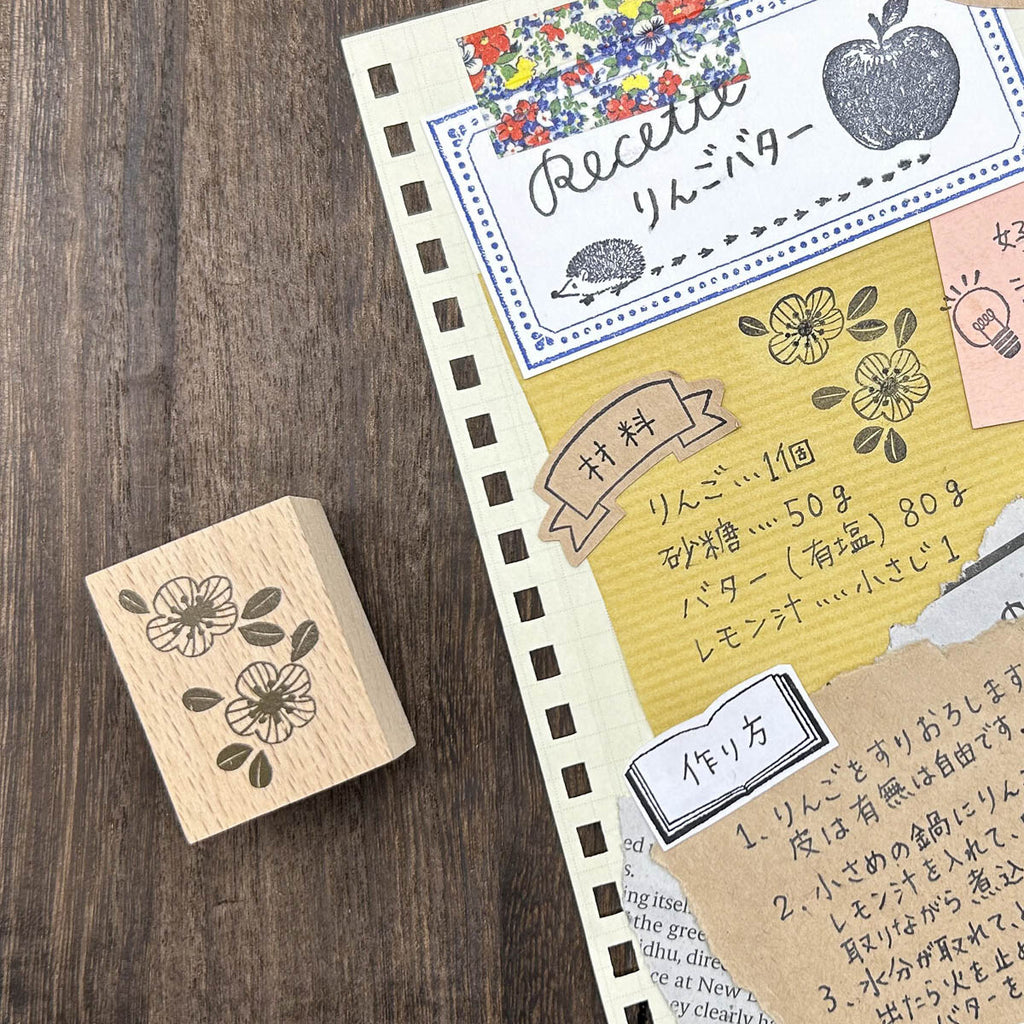 Recette
りんごバター
材料
りんご…1個
砂糖…50g
バター(有塩)80g
レモン汁…小さじ1
作り方
1、りんごをすりおろします
皮は有無は自由です。
2、小さめの鍋にりん
レモン汁を入れて、
取りながら煮込
水分が取れて、と
3、出たら火を止め
バターを
ing itsel
the gree
idhu, direc
ce at New D
ey clearly ha